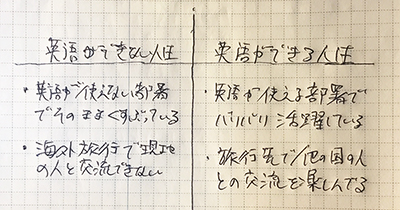 英語ができない人は
・英語が使えない部署
でそのままくすぶっている
・海外旅行で現地
の人と交流できない
英語ができる人は
・英語が使える部署で
バリバリ活躍している
・旅行先で他の国の人
との交流を楽しんでる